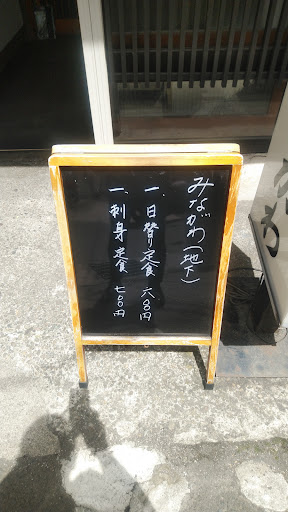 みながわ(地下)
一、日替り定食 六〇〇円
一、刺身定食 七〇〇円